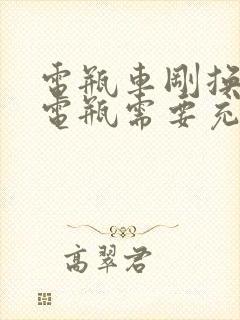 電瓶車剛換
電瓶需要充
高翠君